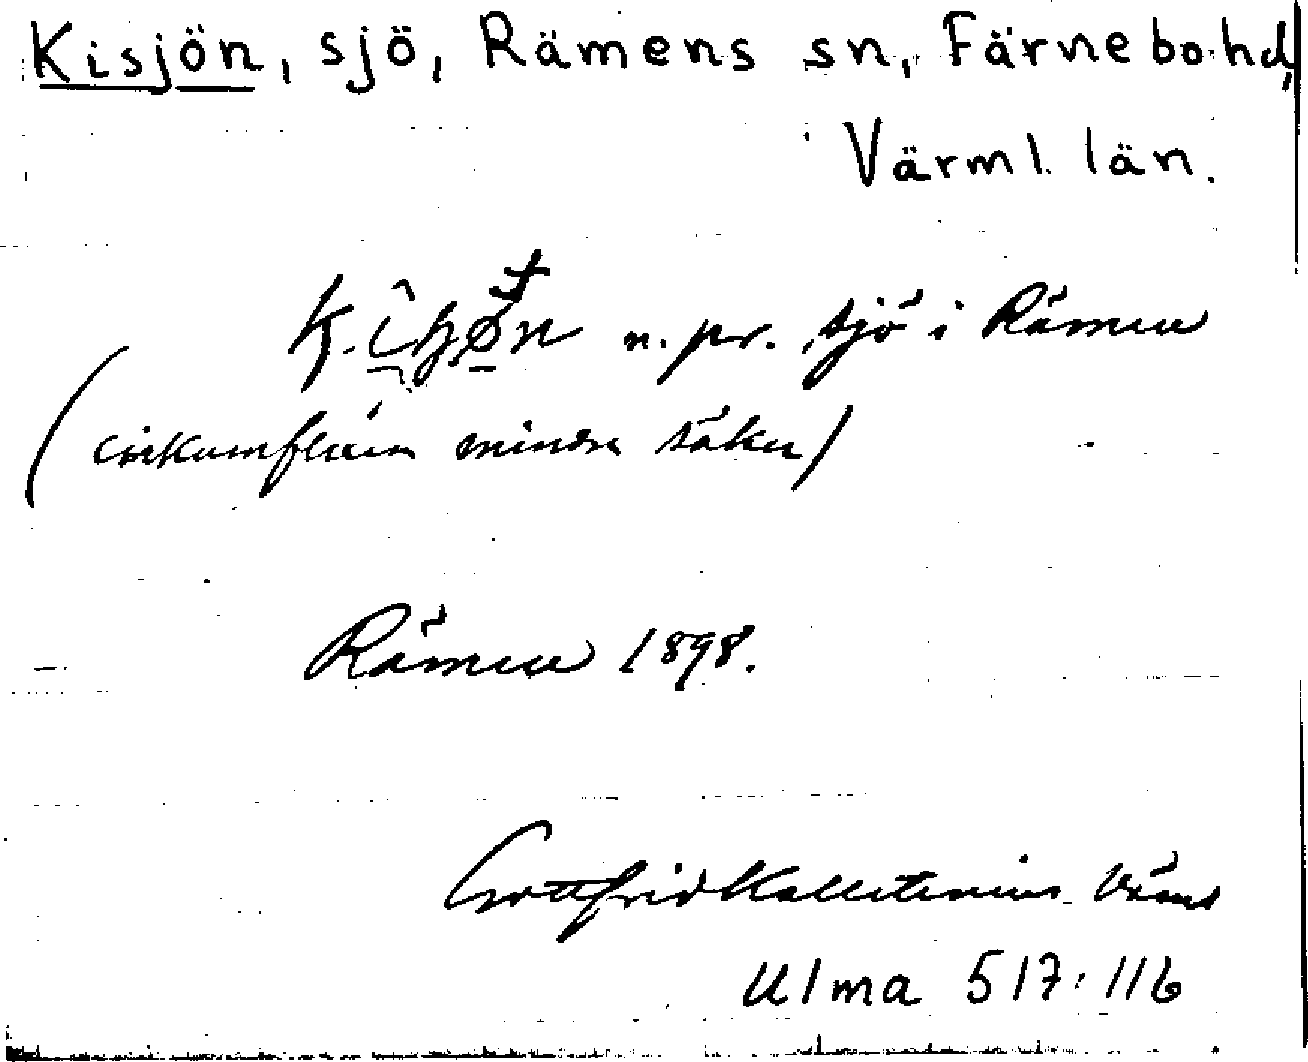 Kisjön, sjö, Rämens sn, Färnebo hd,
Värml. län.
n. pr. sjö i Rämen
(cirkumflexen mindre säker)
Rämen 1898.
Gottfrid Kallstenius Värml
Ulma 517:116